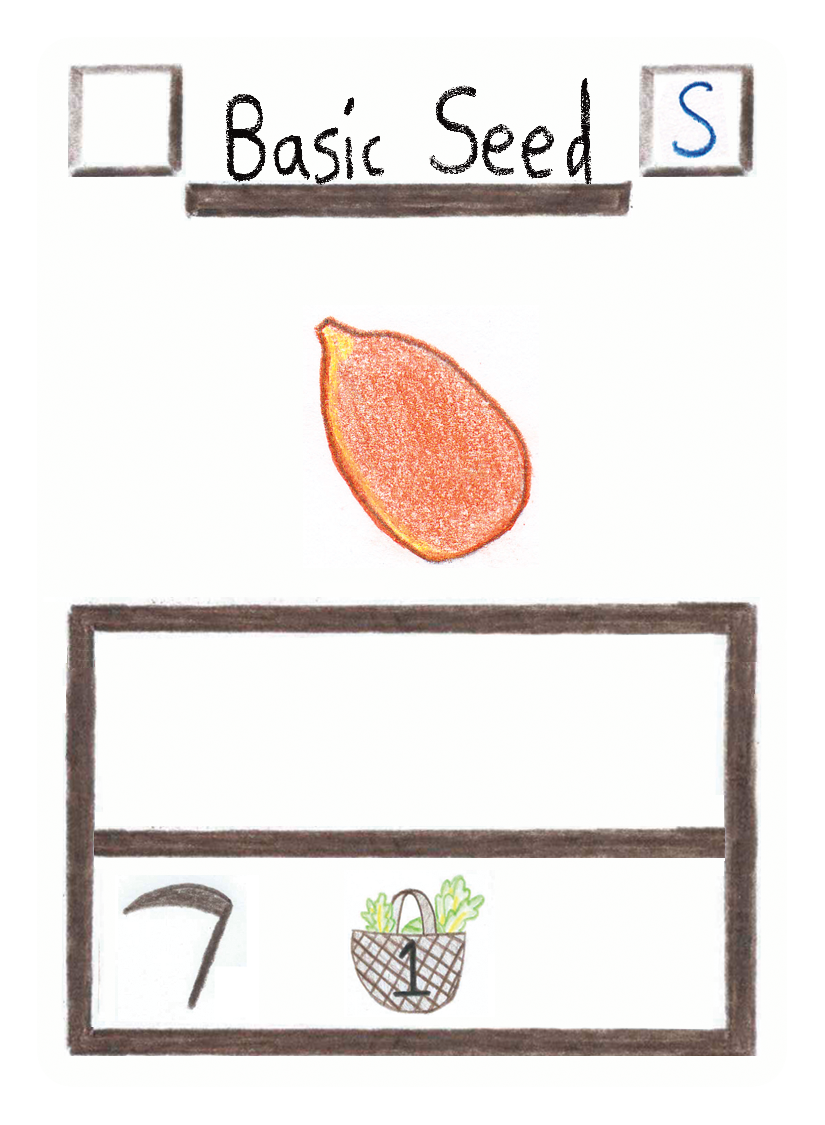 Basic Seed
S
1